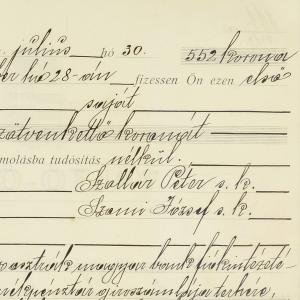 július hó 30. 552 korona
hó 28-án fizessen Ön ezen első
saját
ötvenkettő koronát
molásba tudósítás nélkül.
Szallár Péter s. k.
Szami József s. k.
osztrák magyar bank fiókintézeté-
terhére,